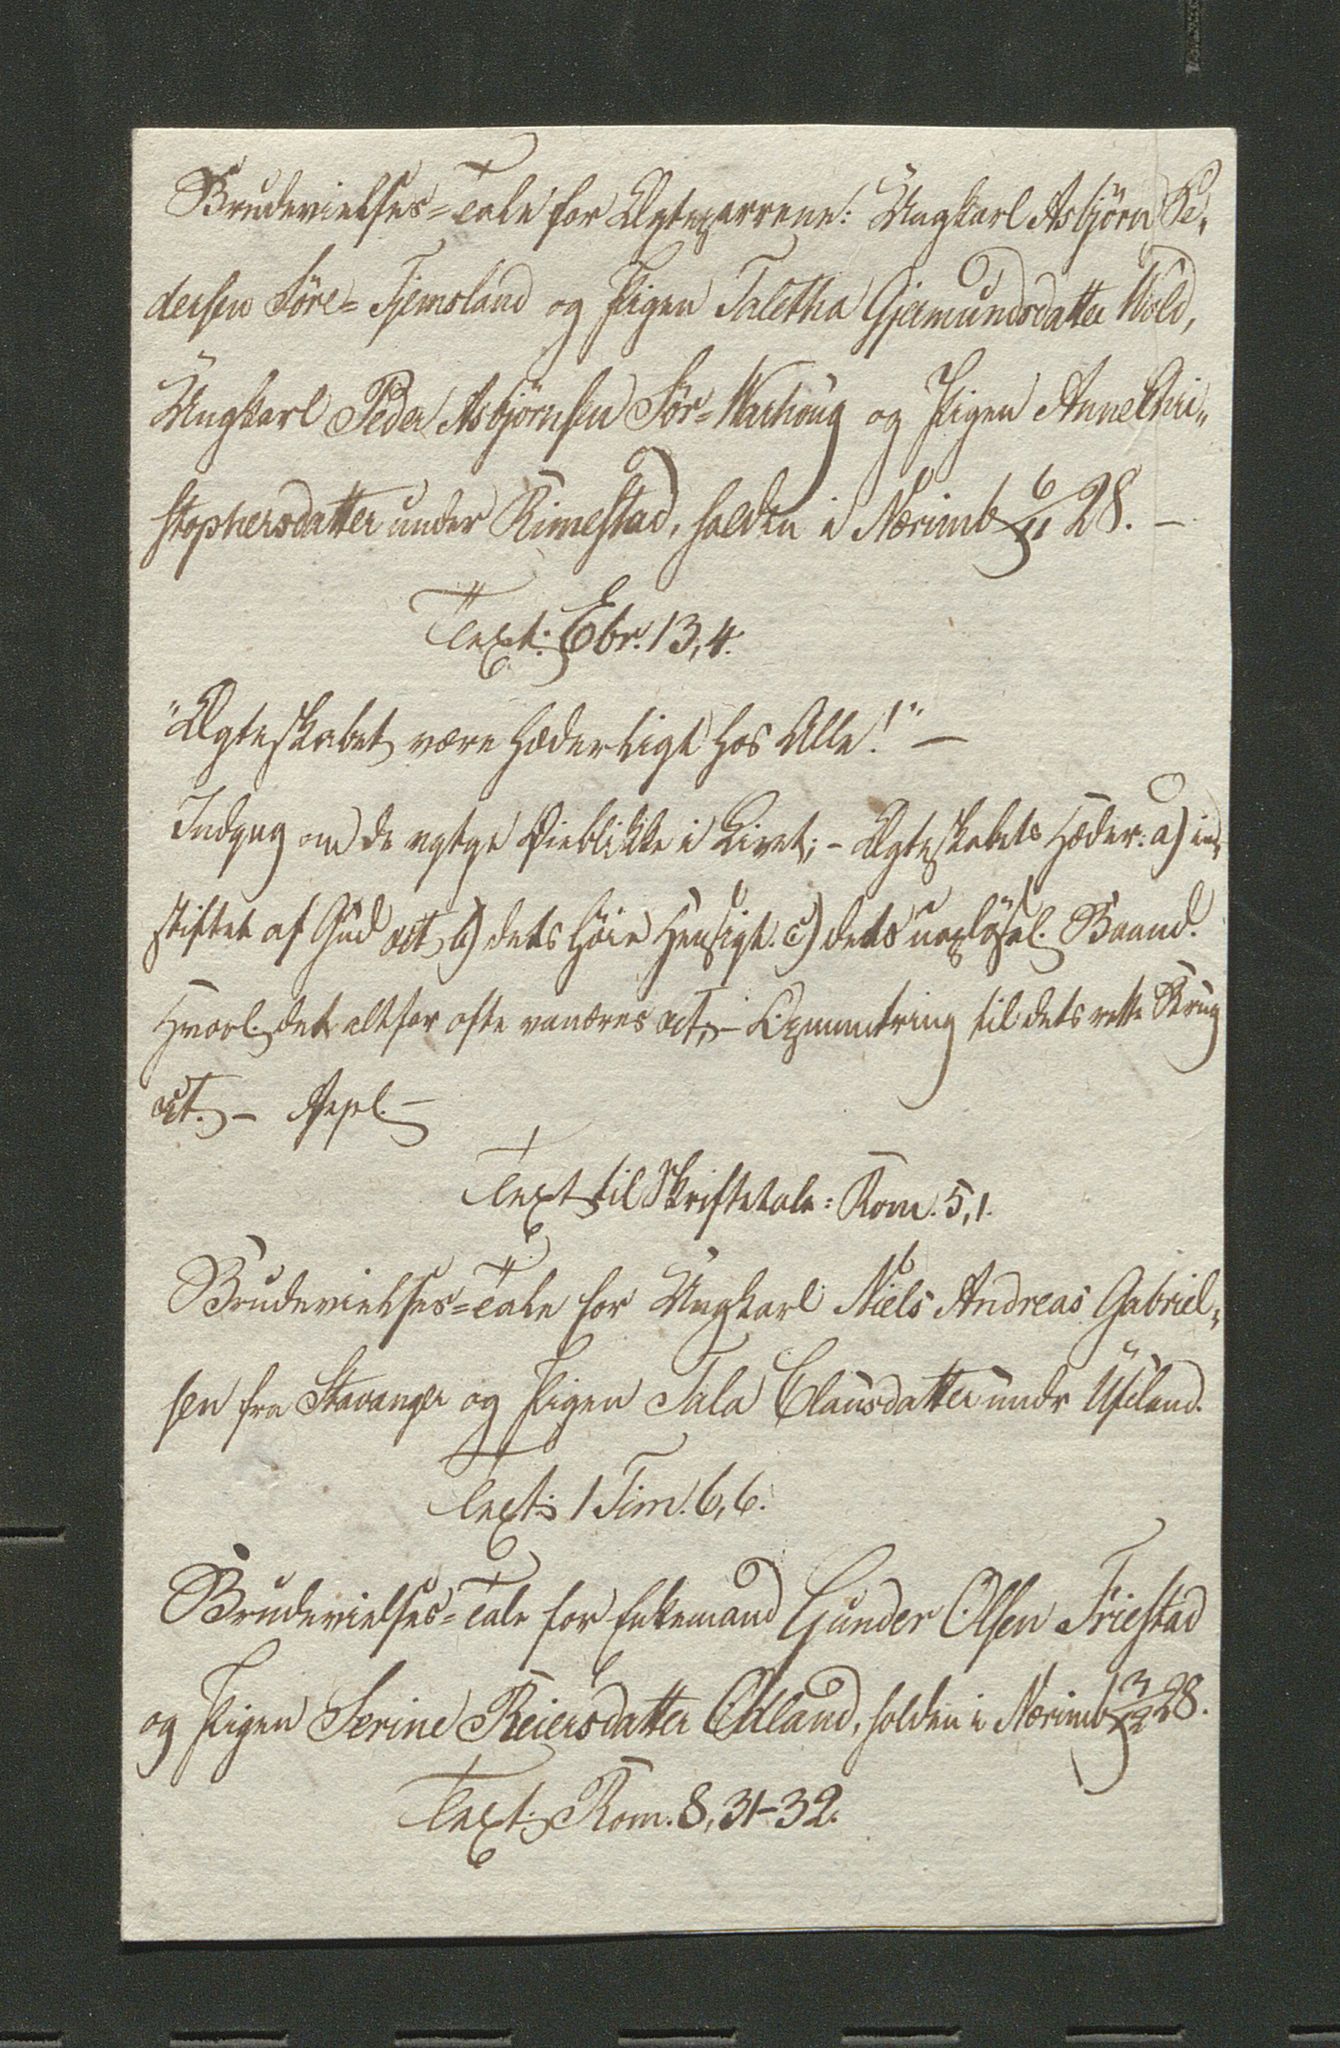 Brudevielses-Tale for Ægteparrene: Ungkarl Asbjörn Pe-
dersen Söre-Tjemsland og Pigen Taletha Gjermundsdatter Wold,
Ungkarl Peder Asbjörnsen Sör-Warhoug og Pigen Anne Chri-
stophersdatter under Rimestad, holden i Nærimb 6/11 28. –
Text: Ebr. 13,4.
"Ægteskabet være hæderligt hos Alle!" –
Indgng om de vgtge Øieblikke i Livet; – Ægteskabets Hæder: a) ind-
stiftet af Gud  b) dets høie Hensigt. c) dets uopløsel. Baand.
Hvorl. det altfor ofte vanæres  – Opmuntring til dets rette Brug
 – Appl. –
Text til Skriftetale: Rom. 5,1.
Brudevielses-Tale for Ungkarl Niels Andreas Gabriel-
sen fra Stavanger og Pigen Tala Clausdatter undr Uftland.
Text: 1 Tim. 6,6.
Brudevielses-Tale for Enkemand Gunder Olsen Friestad
og Pigen Serine Reiersdatter Ødland, holden i Nærimb 3/12 28.
Text: Rom. 8, 31-32.